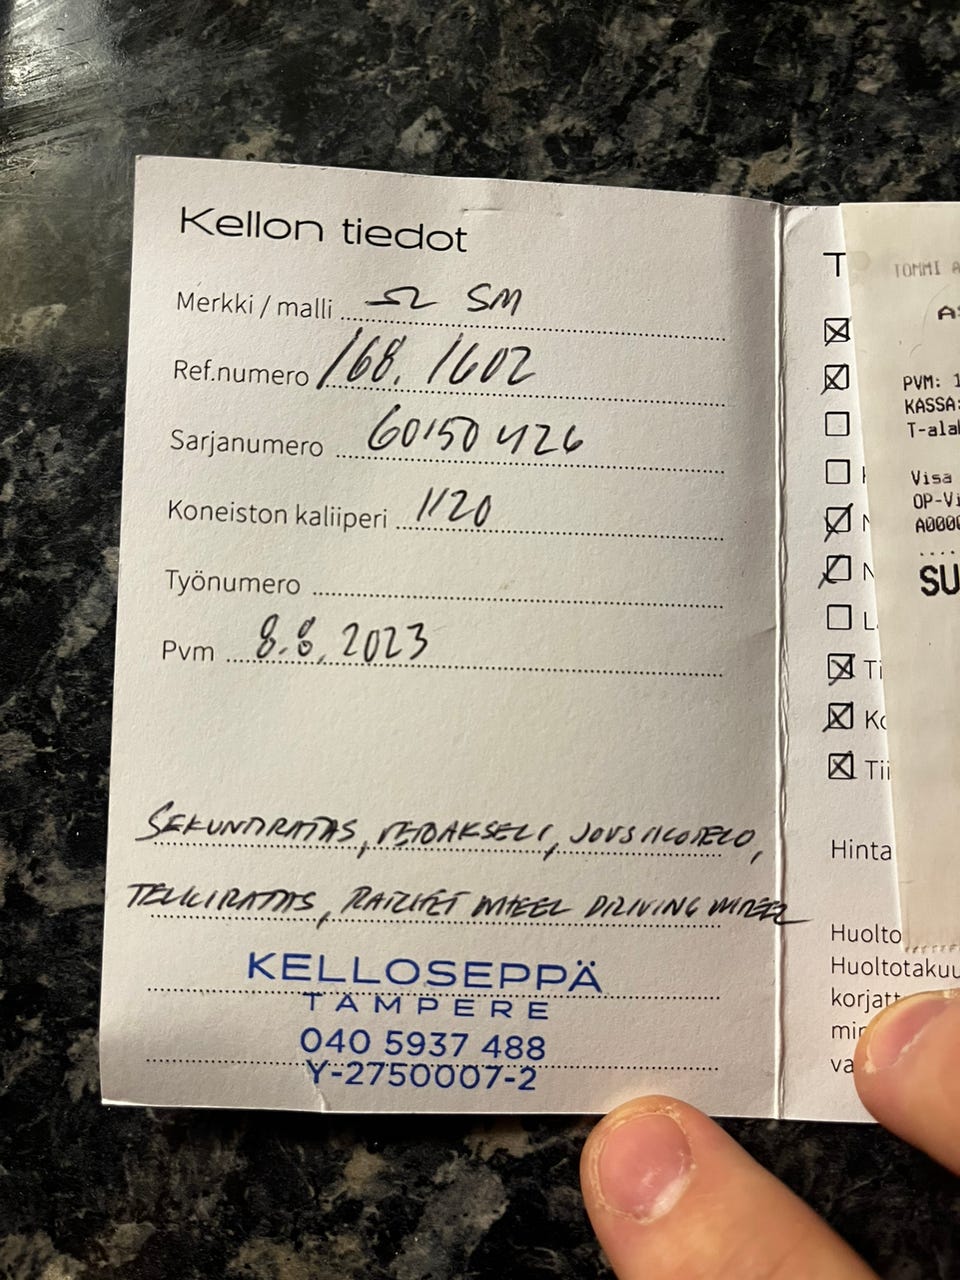 Kellon tiedot
Merkki / malli Ω SM
Ref.numero 168.1602
Sarjanumero 60150426
Koneiston kaliiperi 1120
Työnumero
Pvm 8.8.2023
SEKUNDIRATAS, VETOAKSELI, JOUSIKOTELO,
TELKIRATAS, RATCHET WHEEL DRIVING WHEEL
KELLOSEPPÄ
TAMPERE
040 5937 488
Y-2750007-2
T
N
N
L
Ti
Ko
Tii
Hinta
Huolto
Huoltotakuu
korjatt
min
va
TOMMI A
PVM: 1
KASSA:
T-ala
Visa
OP-Vi
A0000
SU